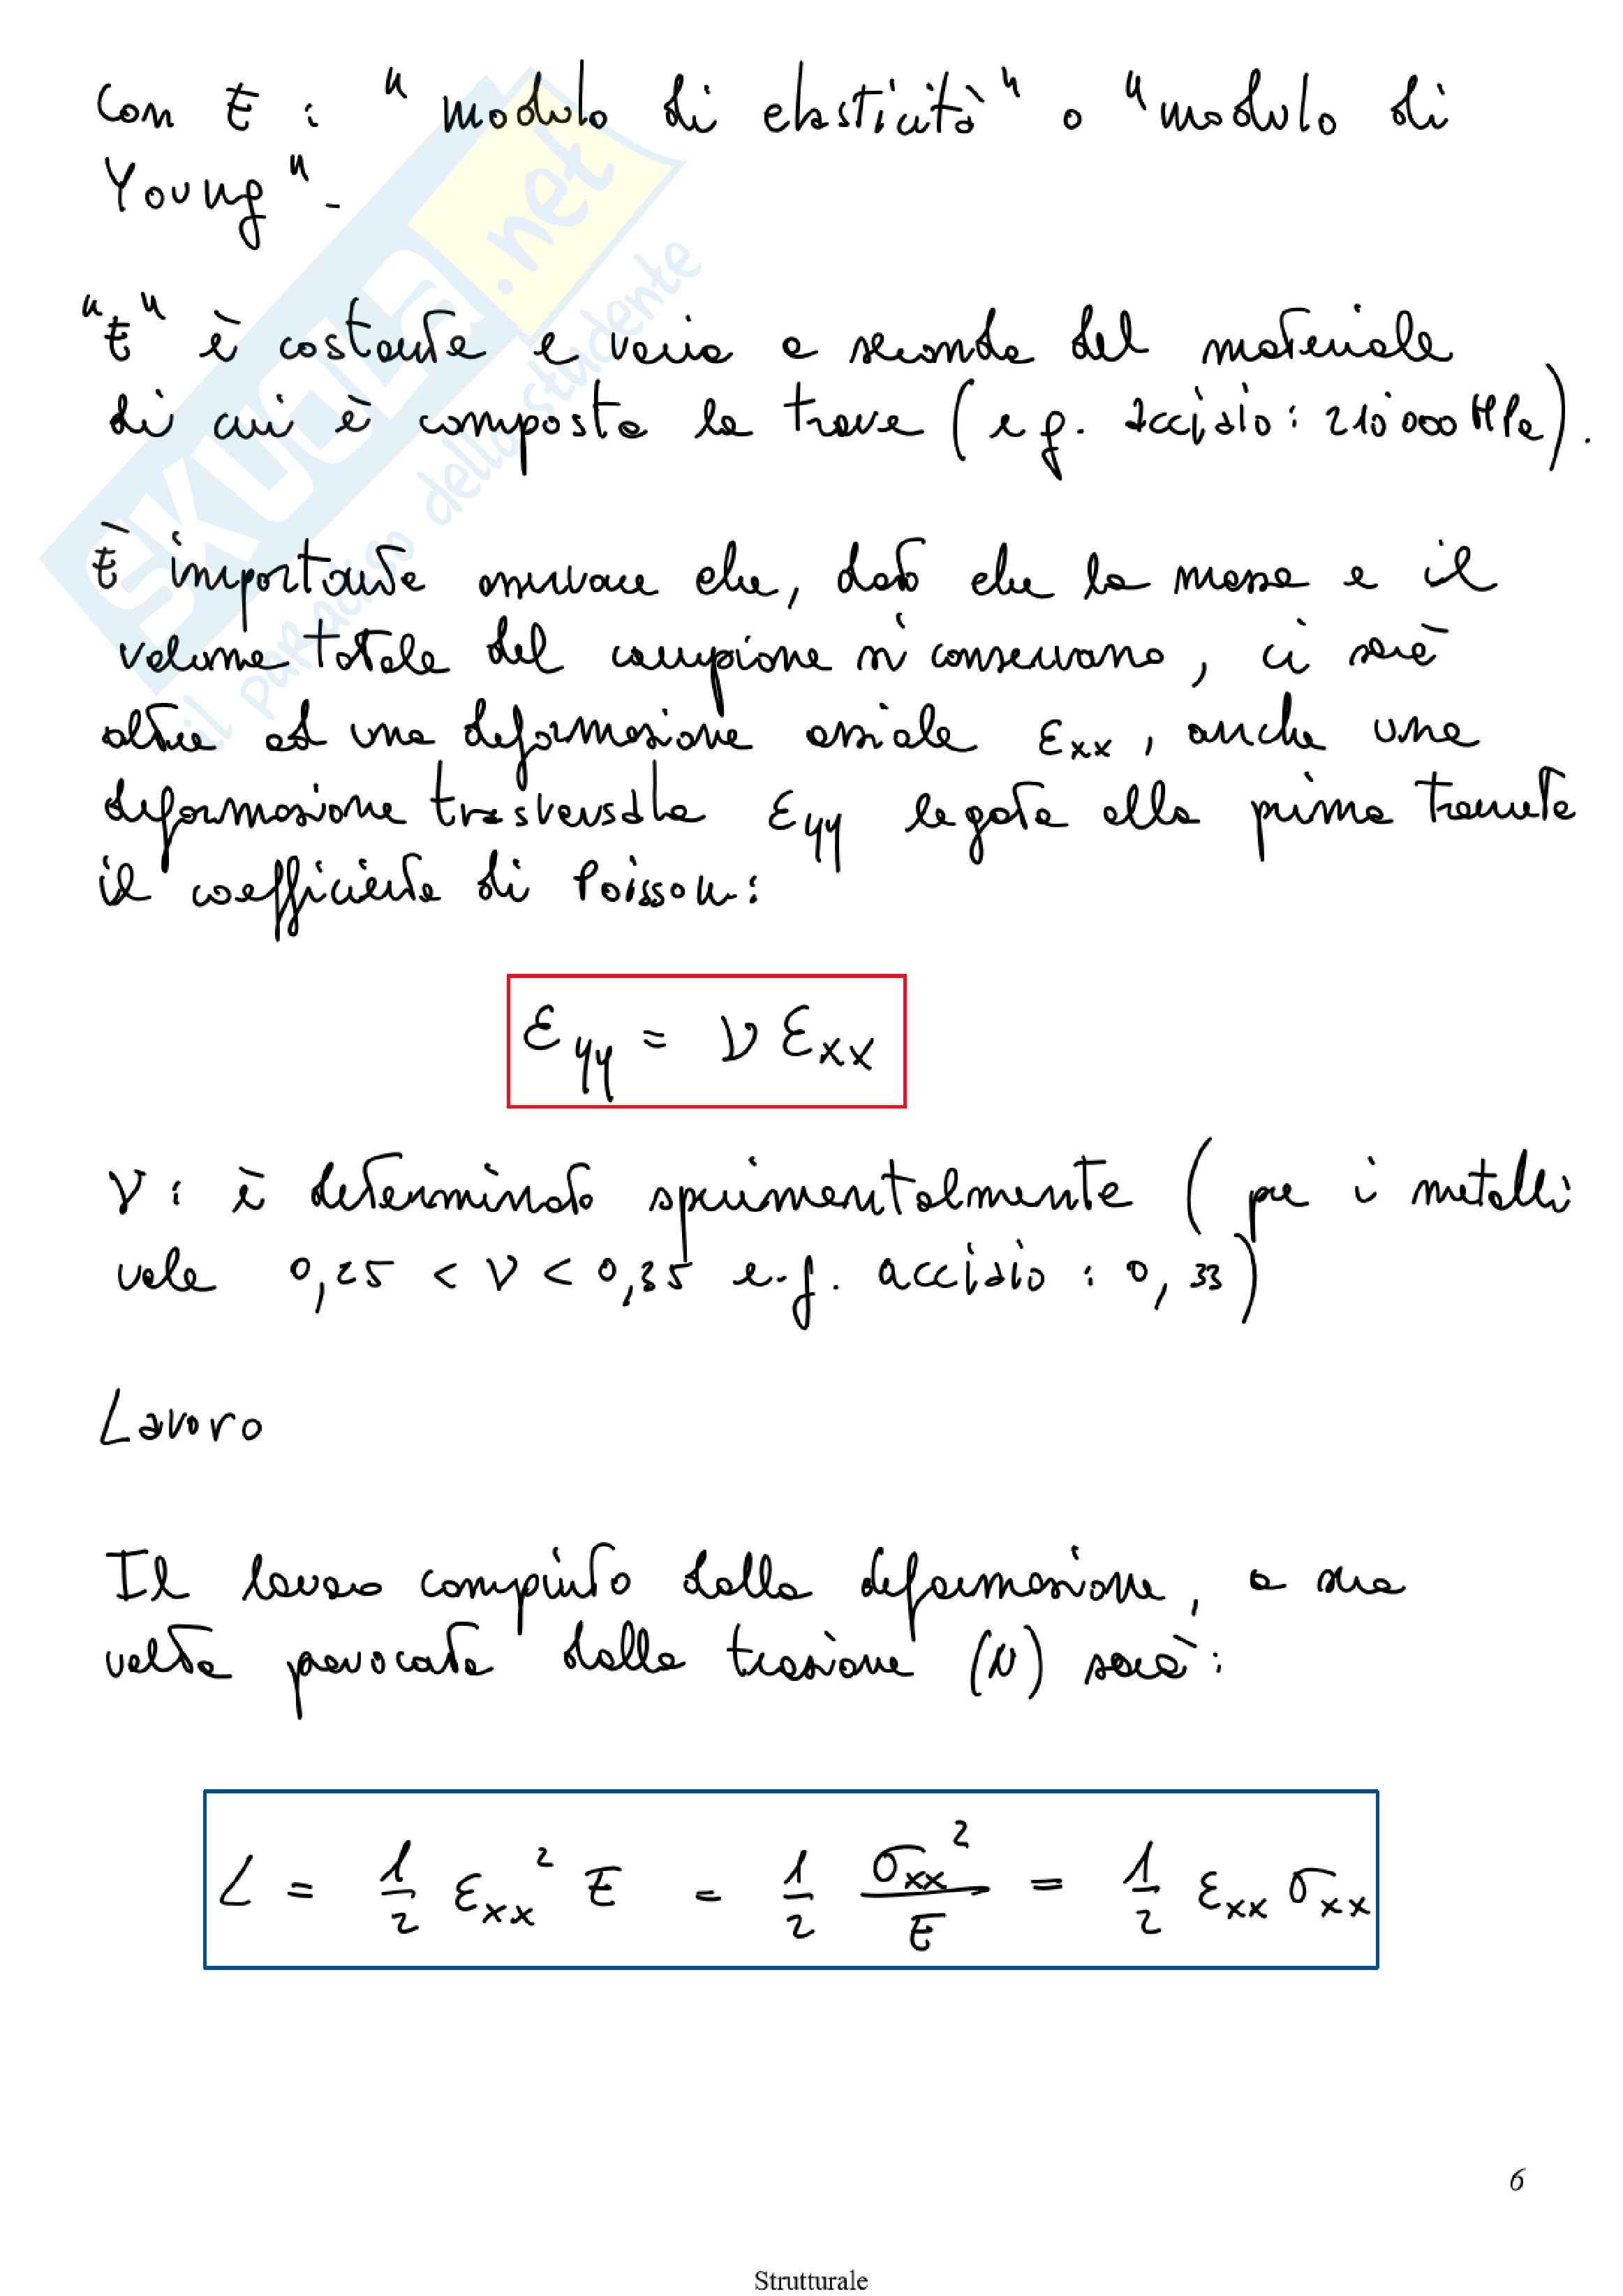 con E : " modulo di elasticità " o " modulo di
Young " -
SKUOLA.net
il paradiso dello studente
" E " è costante e varia a seconda del materiale
di cui è composta la trave ( e.g. acciaio : 210'000 MPa ) .
È importante osservare che, dato che la massa e il
volume totale del campione si conservano , ci sarà
oltre ad una deformazione assiale εxx , anche una
deformazione trasversale εyy legata alla prima tramite
il coefficiente di Poisson :
εyy = ν εxx
ν : è determinato sperimentalmente ( per i metalli
vale 0,25 < ν < 0,35 e.g. acciaio : 0,33 )
Lavoro
Il lavoro compiuto dalla deformazione , a sua
volta provocata dalla trazione (N) sarà :
L = 1/2 εxx² E = 1/2 σxx²/E = 1/2 εxx σxx
6
Strutturale